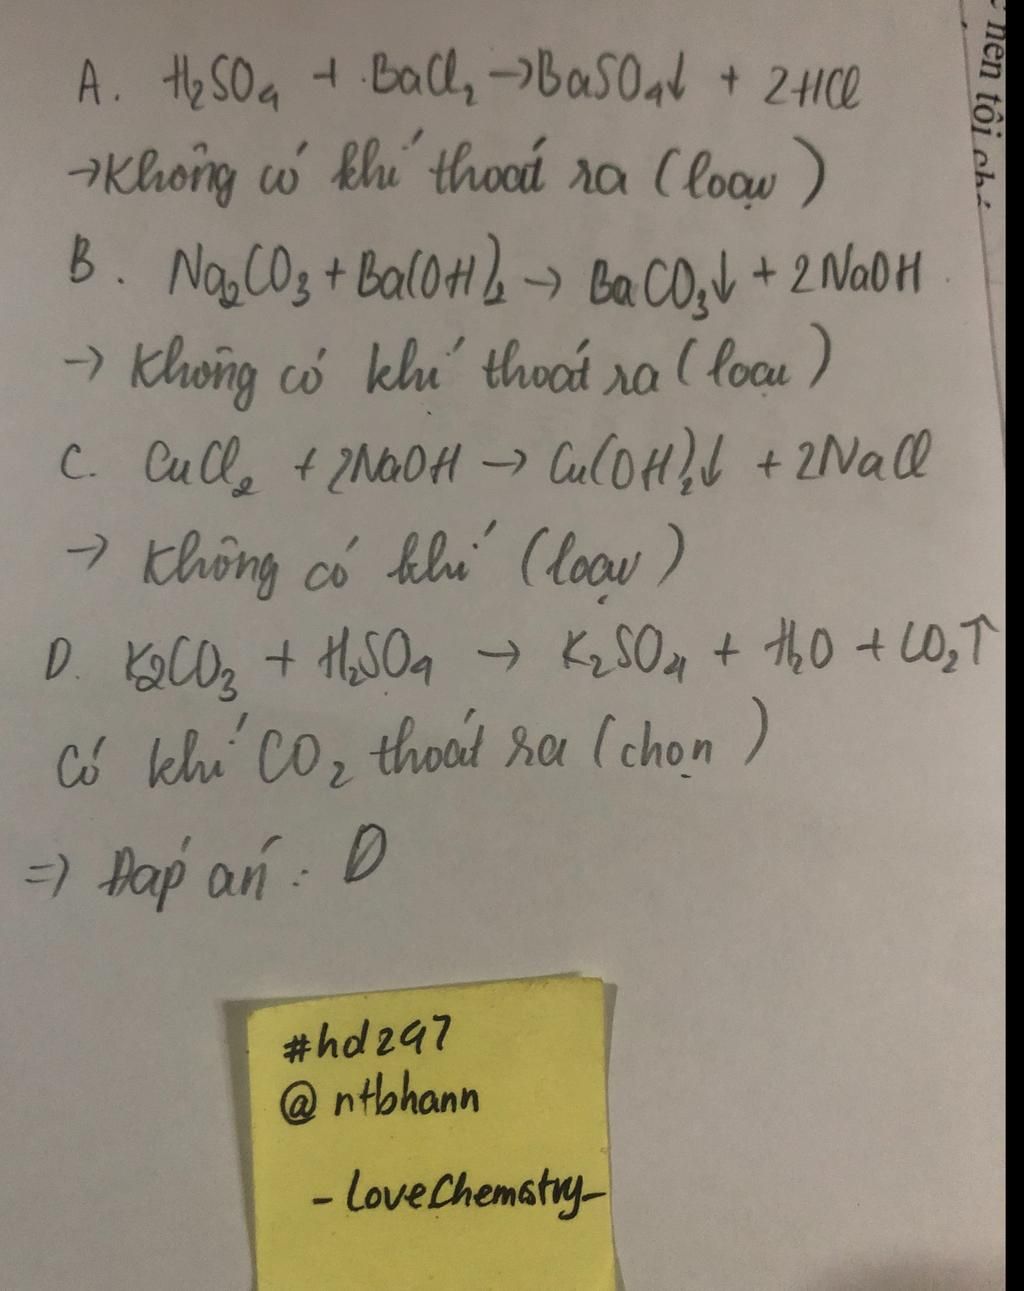 A. H₂SO₄ + BaCl₂ → BaSO₄↓ + 2HCl
→ Không có khí thoát ra (loại)
B. Na₂CO₃ + Ba(OH)₂ → BaCO₃↓ + 2NaOH
→ Không có khí thoát ra (loại)
C. CuCl₂ + 2NaOH → Cu(OH)₂↓ + 2NaCl
→ Không có khí (loại)
D. K₂CO₃ + H₂SO₄ → K₂SO₄ + H₂O + CO₂↑
Có khí CO₂ thoát ra (chọn)
=> Đáp án: D
#hd247
@ntbhann
- LoveChemstry -
nên tôi